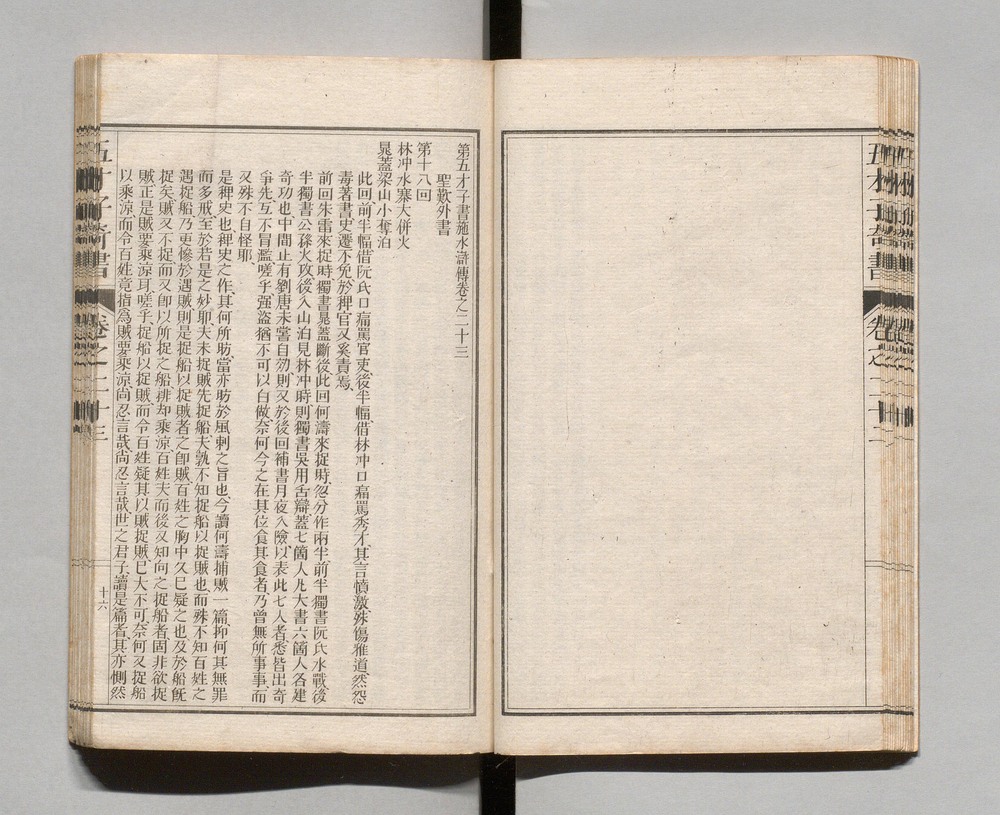 五才子奇書
卷之二十二
第五才子書施水滸傳卷之二十三
聖歎外書
第十八回
林冲水寨大併火
晁蓋梁山小奪泊
此回前半幅借阮氏口痛罵官吏後半幅借林冲口痛罵秀才其言憤激殊傷雅道然怨
毒著書史遷不免於稗官又奚責焉
前回朱雷來捉時獨書晁蓋斷後此回何濤來捉時忽分作兩半前半獨書阮氏水戰後
半獨書公孫火攻後入山泊見林冲時則獨書吳用舌辯蓋七箇人凡大書六箇人各建
奇功也中間止有劉唐未嘗自効則又於後回補書月夜入險以表此七人者悉皆出奇
爭先互不冒濫嗟乎強盜猶不可以白做奈何今之在其位食其食者乃曾無所事事而
又殊不自怪耶
是稗史也稗史之作其何所昉當亦昉於風刺之旨也今讀何濤捕賊一篇抑何其無罪
而多戒至於若是之妙耶夫未捉賊先捉船夫孰不知捉船以捉賊也而殊不知百姓之
遇捉船乃更慘於遇賊則是捉船以捉賊者之即賊百姓之胸中久已疑之也及於船旣
捉矣賊又不捉而又即以所捉之船排却乘涼百姓夫而後又知向之捉船者固非欲捉
賊正是賊要乘涼耳嗟乎捉船以捉賊而令百姓疑其以賊捉賊已大不可奈何又捉船
以乘涼而令百姓竟指為賊要乘涼尚忍言哉尚忍言哉世之君子讀是篇者其亦惻然
五才子奇書
卷之二十三
十六